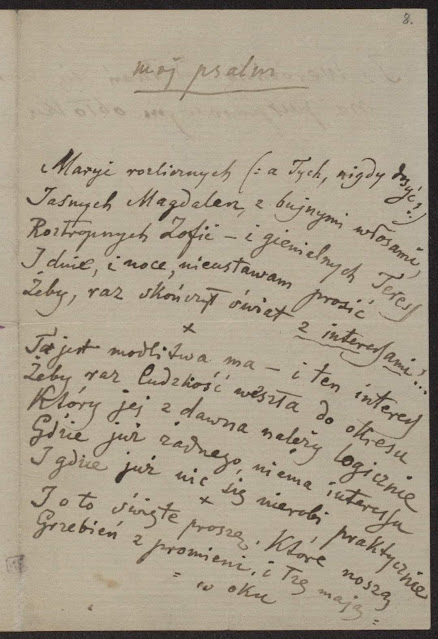 8.
mój psalm
Maryi rozlicznych (: a Tych, nigdy dosyć?)
Jasnych Magdalen, z bujnymi włosami,
Roztropnych Zofii – i gienialnych Teress
I dnie, i noce, nieustawam prosić
Żeby, raz skończył świat z interessami!...
×
Ta jest modlitwa ma – i ten interess
Żeby raz Ludzkość weszła do okresu
Który jej z dawna należy logicznie
Gdzie już żadnego, niéma interessu
I gdzie już nic się nierobi praktycznie
×
I o to święte proszę, Które noszą
Grzebień z promieni, i łzę mają =
= w oku